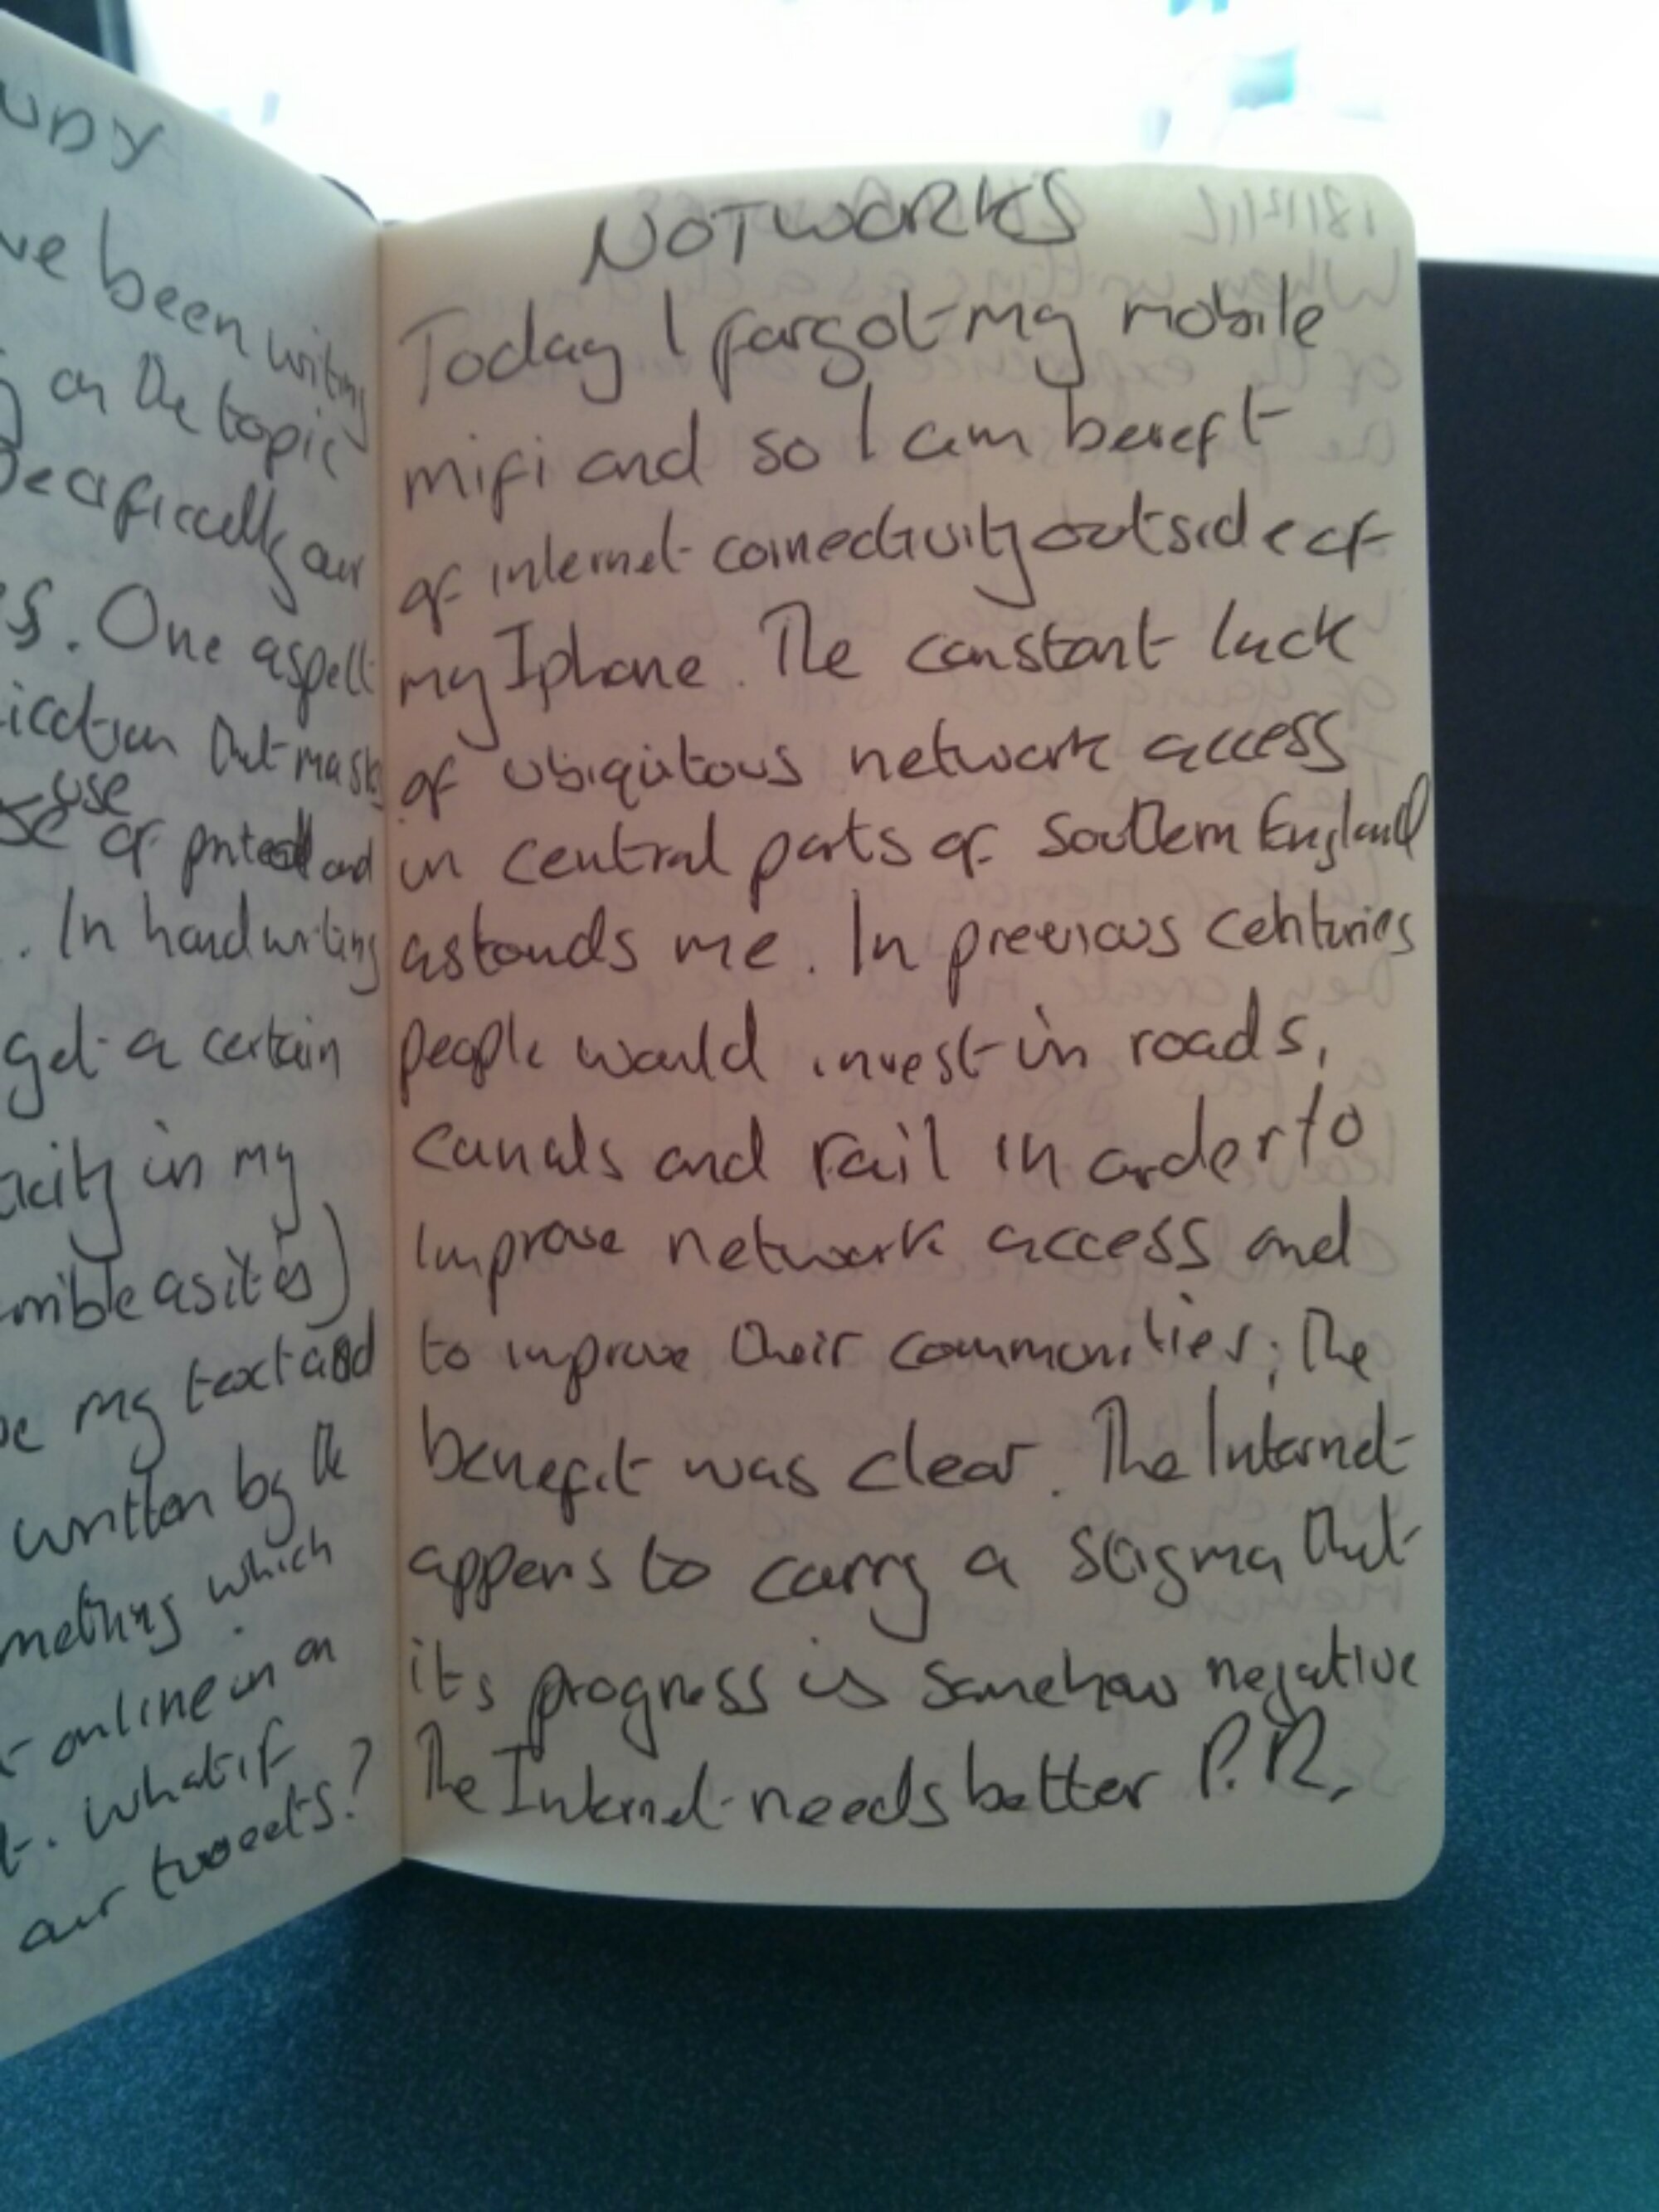 UDY
ve been writing
on the topic
pecifically our
s. One aspect
ication that masks
use
of protocol and
. In handwriting
get a certain
acity in my
errible as it is)
be my text and
written by the
mething which
t online in an
t. what if
our tweets?
NOTWORKS
Today I forgot my mobile
mifi and so I am bereft
of internet connectivity outside of
my Iphone. The constant lack
of ubiquitous network access
in central parts of Southern England
astounds me. In previous centuries
people would invest in roads,
canals and rail in order to
improve network access and
to improve their communities; the
benefit was clear. The Internet
appers to carry a stigma that
its progress is somehow negative
The Internet needs better P.R.